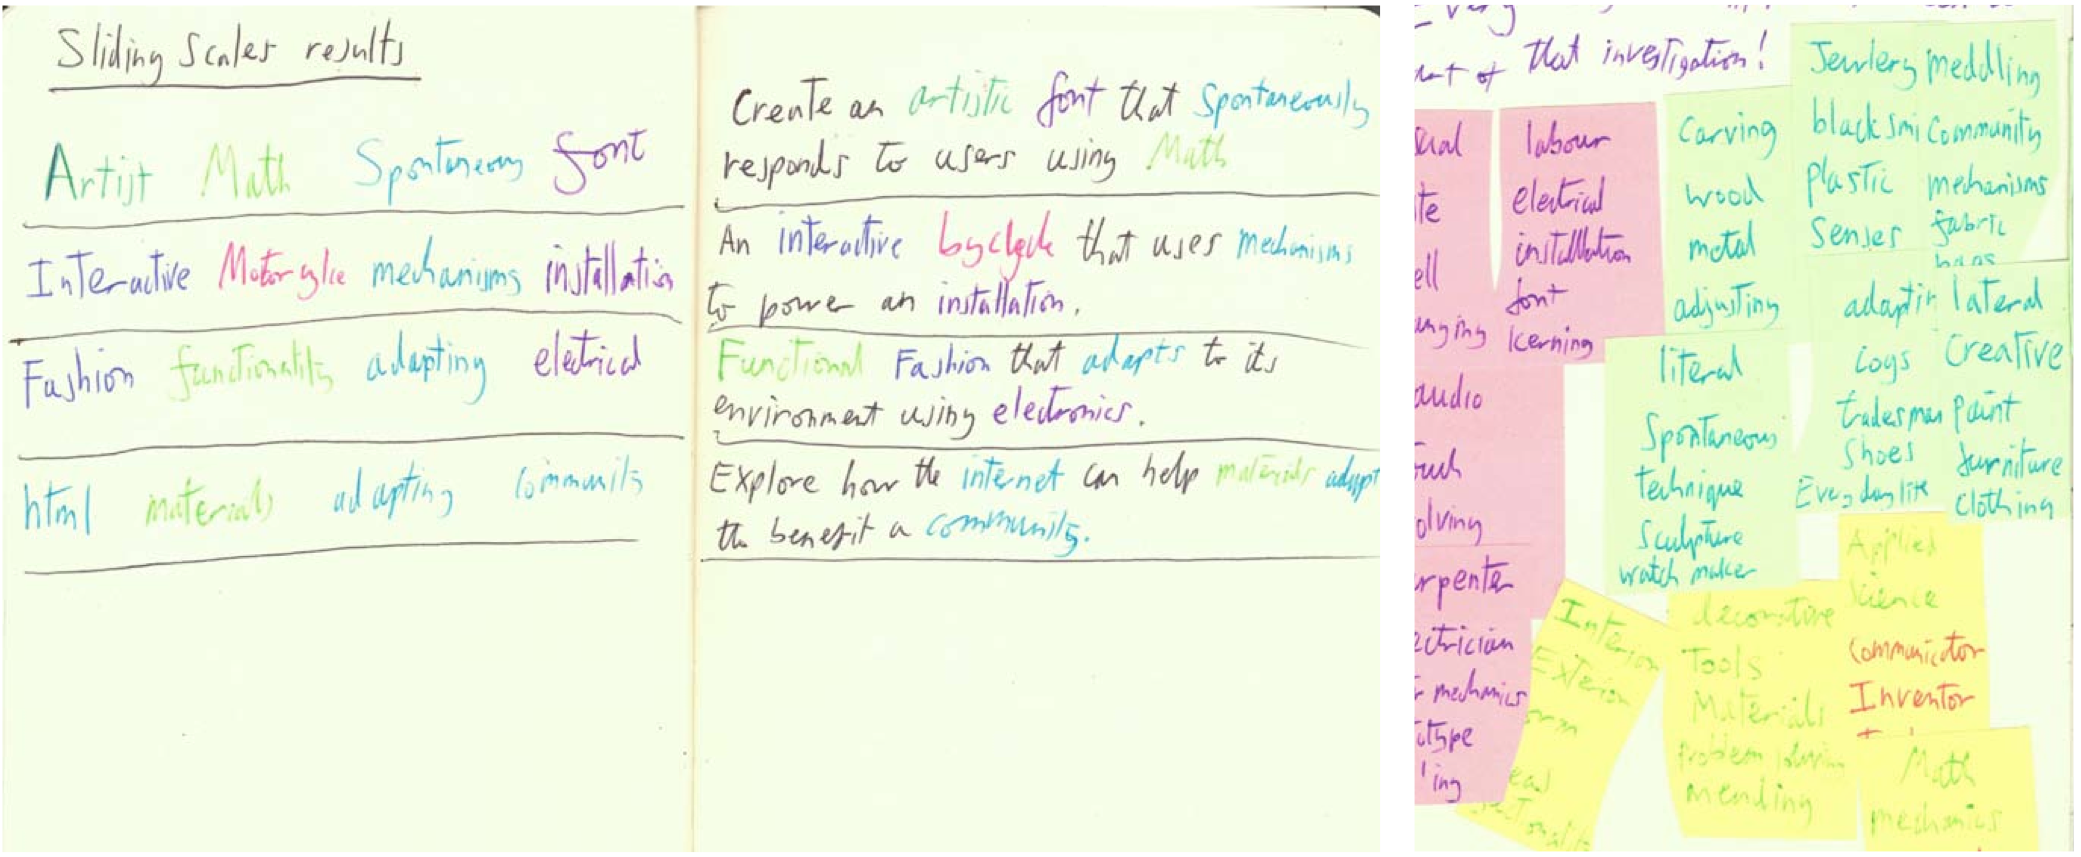 Sliding Scales results
Artist Math Spontaneous font
Interactive Motorcylce mechanisms installation
Fashion functionality adapting electrical
html materials adapting community
Create an artistic font that Spontaneously
responds to users using Math
An interactive byclycle that uses mechanisms
to power an installation.
Functional Fashion that adapts to its
environment using electronics.
Explore how the internet can help materials adapt
the benefit a community.
that investigation!
labour
electrical
installation
font
kerning
audio
Carving
wood
metal
adjusting
literal
Spontaneous
technique
Sculpture
watch maker
Jewlery
black smi
plastic
Senses
meddling
Community
mechanisms
fabric
adaptin
cogs
tradesman
Shoes
Every day life
lateral
Creative
paint
furniture
clothing
Interior
Exterior
decorative
Tools
Materials
Problem solving
mending
Applied
Science
Communicator
Inventor
Math
mechanics